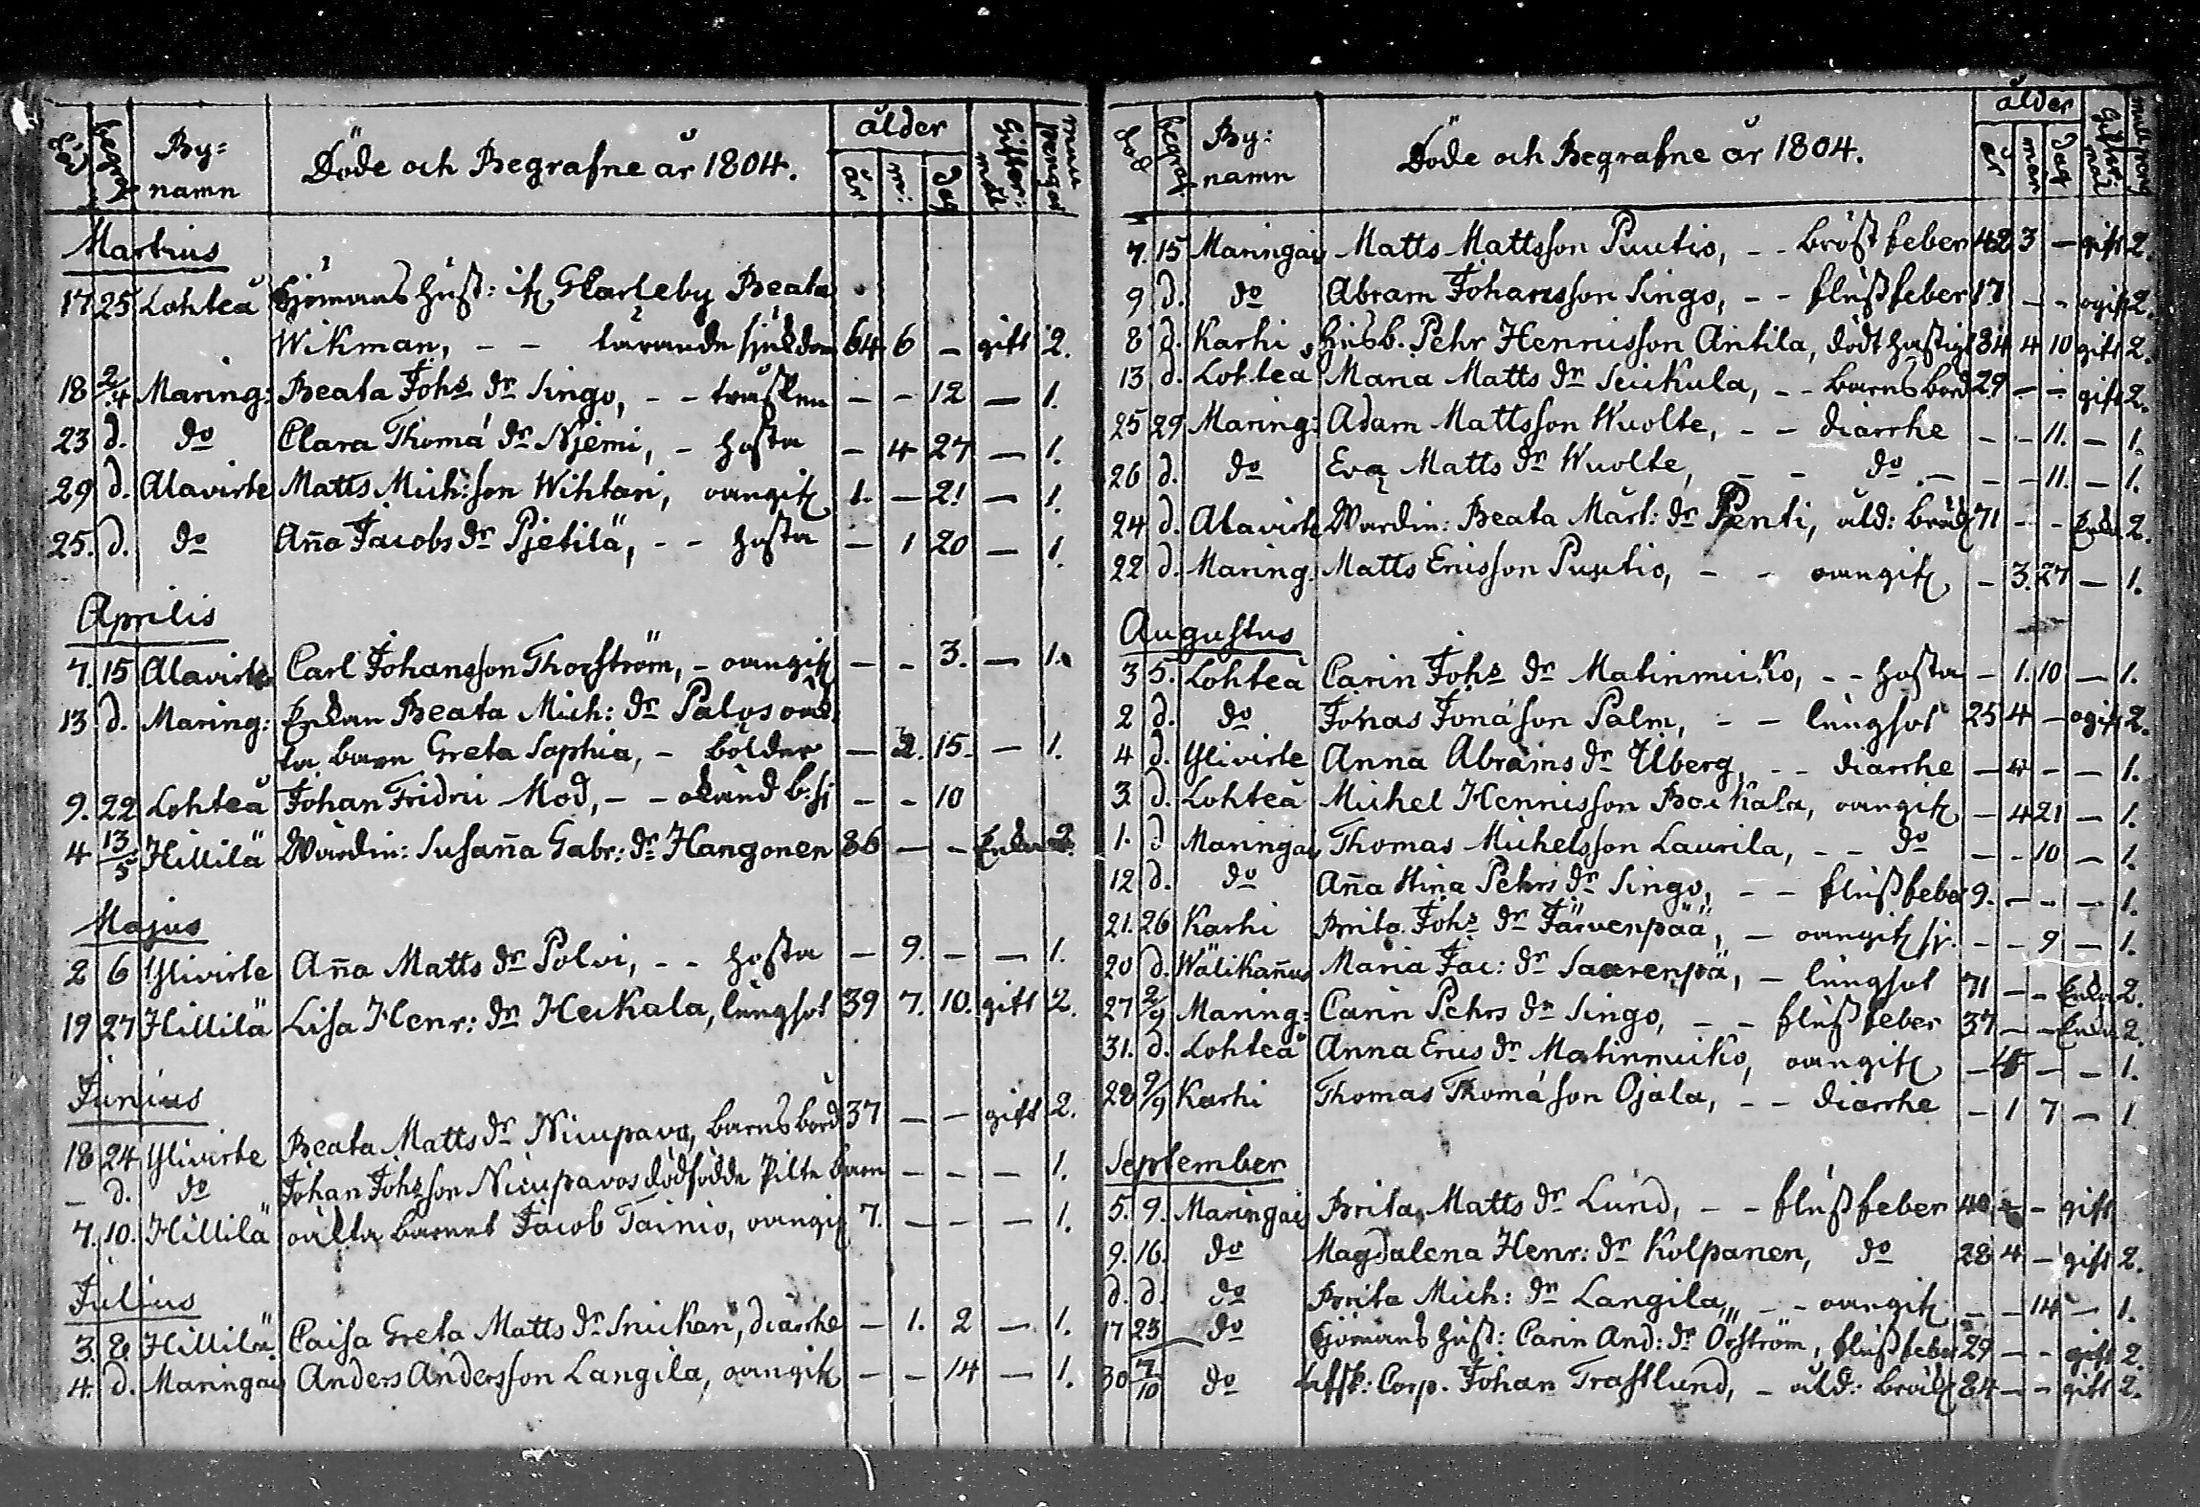 död begr: By= namn Döde och Begrafne år 1804. ålder år m: dag Gifter: mål mull pengar
Martius
17 25 Lohteå Sjömans hust: if Gkarleby Beata
Wikman, - - tärande sjukdom 64 6 - gift 2.
18 2/4 Maring: Beata Johs dr Singo, - - tråsken - - 12 - 1.
23 d. do Clara Thomæ dr Njemi, - hosta - 4 27 - 1.
29 d. Alavirte Matts Mich:son Wihtari, oangif 1. - 21 - 1.
25. d. do Aña Jacobs dr Pjetilä, - - hosta - 1 20 - 1.
Aprilis
7. 15 Alavirte Carl Johansson Thorström, - oangif - - 3. - 1.
13 d. Maring: Enkan Beata Mich: dr Palos oäk
ta barn Greta Sophia, - bölder - 2. 15. - 1.
9. 22 Lohteå Johan Fridric Mod, - - okänd b:sj - - 10
4 13/5 Hillilä Wärdin: Susaña Gabr: dr Hangonen 86 - - Enka 2.
Majus
2 6 Ylivirte Aña Matts dr Polvi, - - hosta - 9. - - 1.
19 27 Hillilä Lisa Henr: dr Heikala, lungsot 39 7. 10. gift 2.
Junius
18 24 Ylivirte Beata Matts dr Nicupavo, barnsbörd 37 - - gift 2.
- d. do Johan Johsson Nicupavos dödfödde Pilte barn - - - - 1.
7. 10. Hillilä oäkta barnet Jacob Tainio, oangif 7. - - - 1.
Julius
3. 8. Hillilä Caisa Greta Matts dr Snickari, diarrhe - 1. 2 - 1.
4. d. Maringais Anders Andersson Langila, oangif - - 14 - 1.
död begraf By: namn Döde och Begrafne år 1804. ålder år mån dag Gifter: mål mull peng
7. 15 Maringais Matts Mattsson Puutio, - - bröstfeber 42 3 - gift 2.
9 d. do Abram Johansson Singo, - - flussfeber 17 - - ogift 2.
8 d. Karhi Husb. Pehr Henricsson Antila, dödt hastigt 34 4 10 gift 2.
13 d. Lohteå Maria Matts dr Seickula, - - barnsbörd 29 - - gift 2.
25 29 Maring: Adam Mattsson Wuolte, - - diarrhe - - 11. - 1.
26 d. do Eva Matts dr Wuolte, - - do - - - 11. - 1.
24 d. Alavirte Wärdin: Beata Mårt: dr Penti, åld: bräck 71 - - Enka 2.
22 d. Maring. Matts Ericsson Puutio, - - oangif - 3. 27 - 1.
Augustus
3 5. Lohteå Carin Johs dr Matinmicko, - - hosta - 1. 10 - 1.
2 d. do Jonas Jonæson Palm, - - lungsot 25 4 - ogift 2.
4 d. Ylivirte Anna Abrams dr Uberg, - - diarrhe - 4 - - 1.
3 d. Lohteå Michel Henricsson Boikala, oangif - 4 21 - 1.
1. d Maringais Thomas Michelsson Laurila, - - do - - 10 - 1.
12 d. do Aña Stina Pehrs dr Singo, - - flussfeber 9. - - - 1.
21. 26 Karhi Brita Johs dr Järvenpää, - oangif sj. - - 9 - 1.
20 d. Wälikañus Maria Jac: dr Saarenpä, - lungsot 71 - - Enka 2.
27 2/9 Maring: Carin Pehrs dr Singo, - - flussfeber 37 - - Enka 2.
31. d. Lohteå Anna Erics dr Matinmicko, oangif - - - 1.
28 9/9 Karhi Thomas Thomæson Ojala, - - diarrhe - 1 7 - 1
September
5. 9. Maringais Brita Matts dr Lund, - - flussfeber 40 - - gift
9. 16. do Magdalena Henr: dr Kolpanen, do 28 4 - gift 2.
d. d. do Brita Mich: dr Langila, - - oangif - - 14 - 1.
17 23 do Sjömans hust: Carin And: dr Öström, flussfeber 29 - - gift 2.
30 7/10 do Afsk: Corp. Johan Trastlund, - åld: bräck 84 - - gift 2.